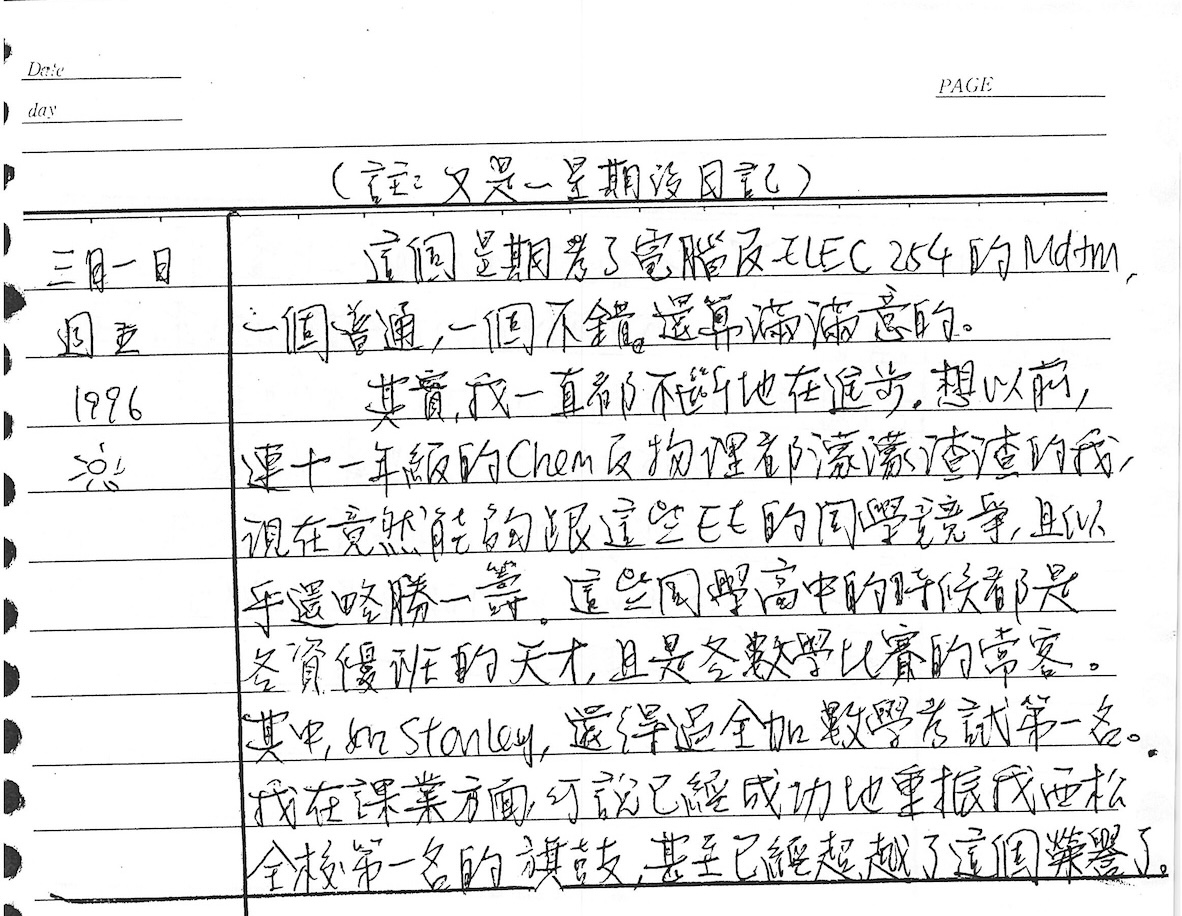 Date
day
PAGE
(註:又是一星期沒日記)
三月一日
週五
1996
這個星期考了電腦及ELEC 254的Mdtm,
一個普通,一個不錯。還算滿滿意的。
其實,我一直都不斷地在進步。想以前,
連十一年級的Chem及物理都濛濛渣渣的我,
現在竟然能夠跟這些EE的同學競爭,且似
乎還略勝一籌。這些同學高中的時候都是
各資優班的天才,且是各數學比賽的常客。
其中,如Stanley,還得過全加數學考試第一名。
我在課業方面,可說已經成功地重振我西松
全校第一名的旗鼓,甚至已經超越了這個榮譽了。